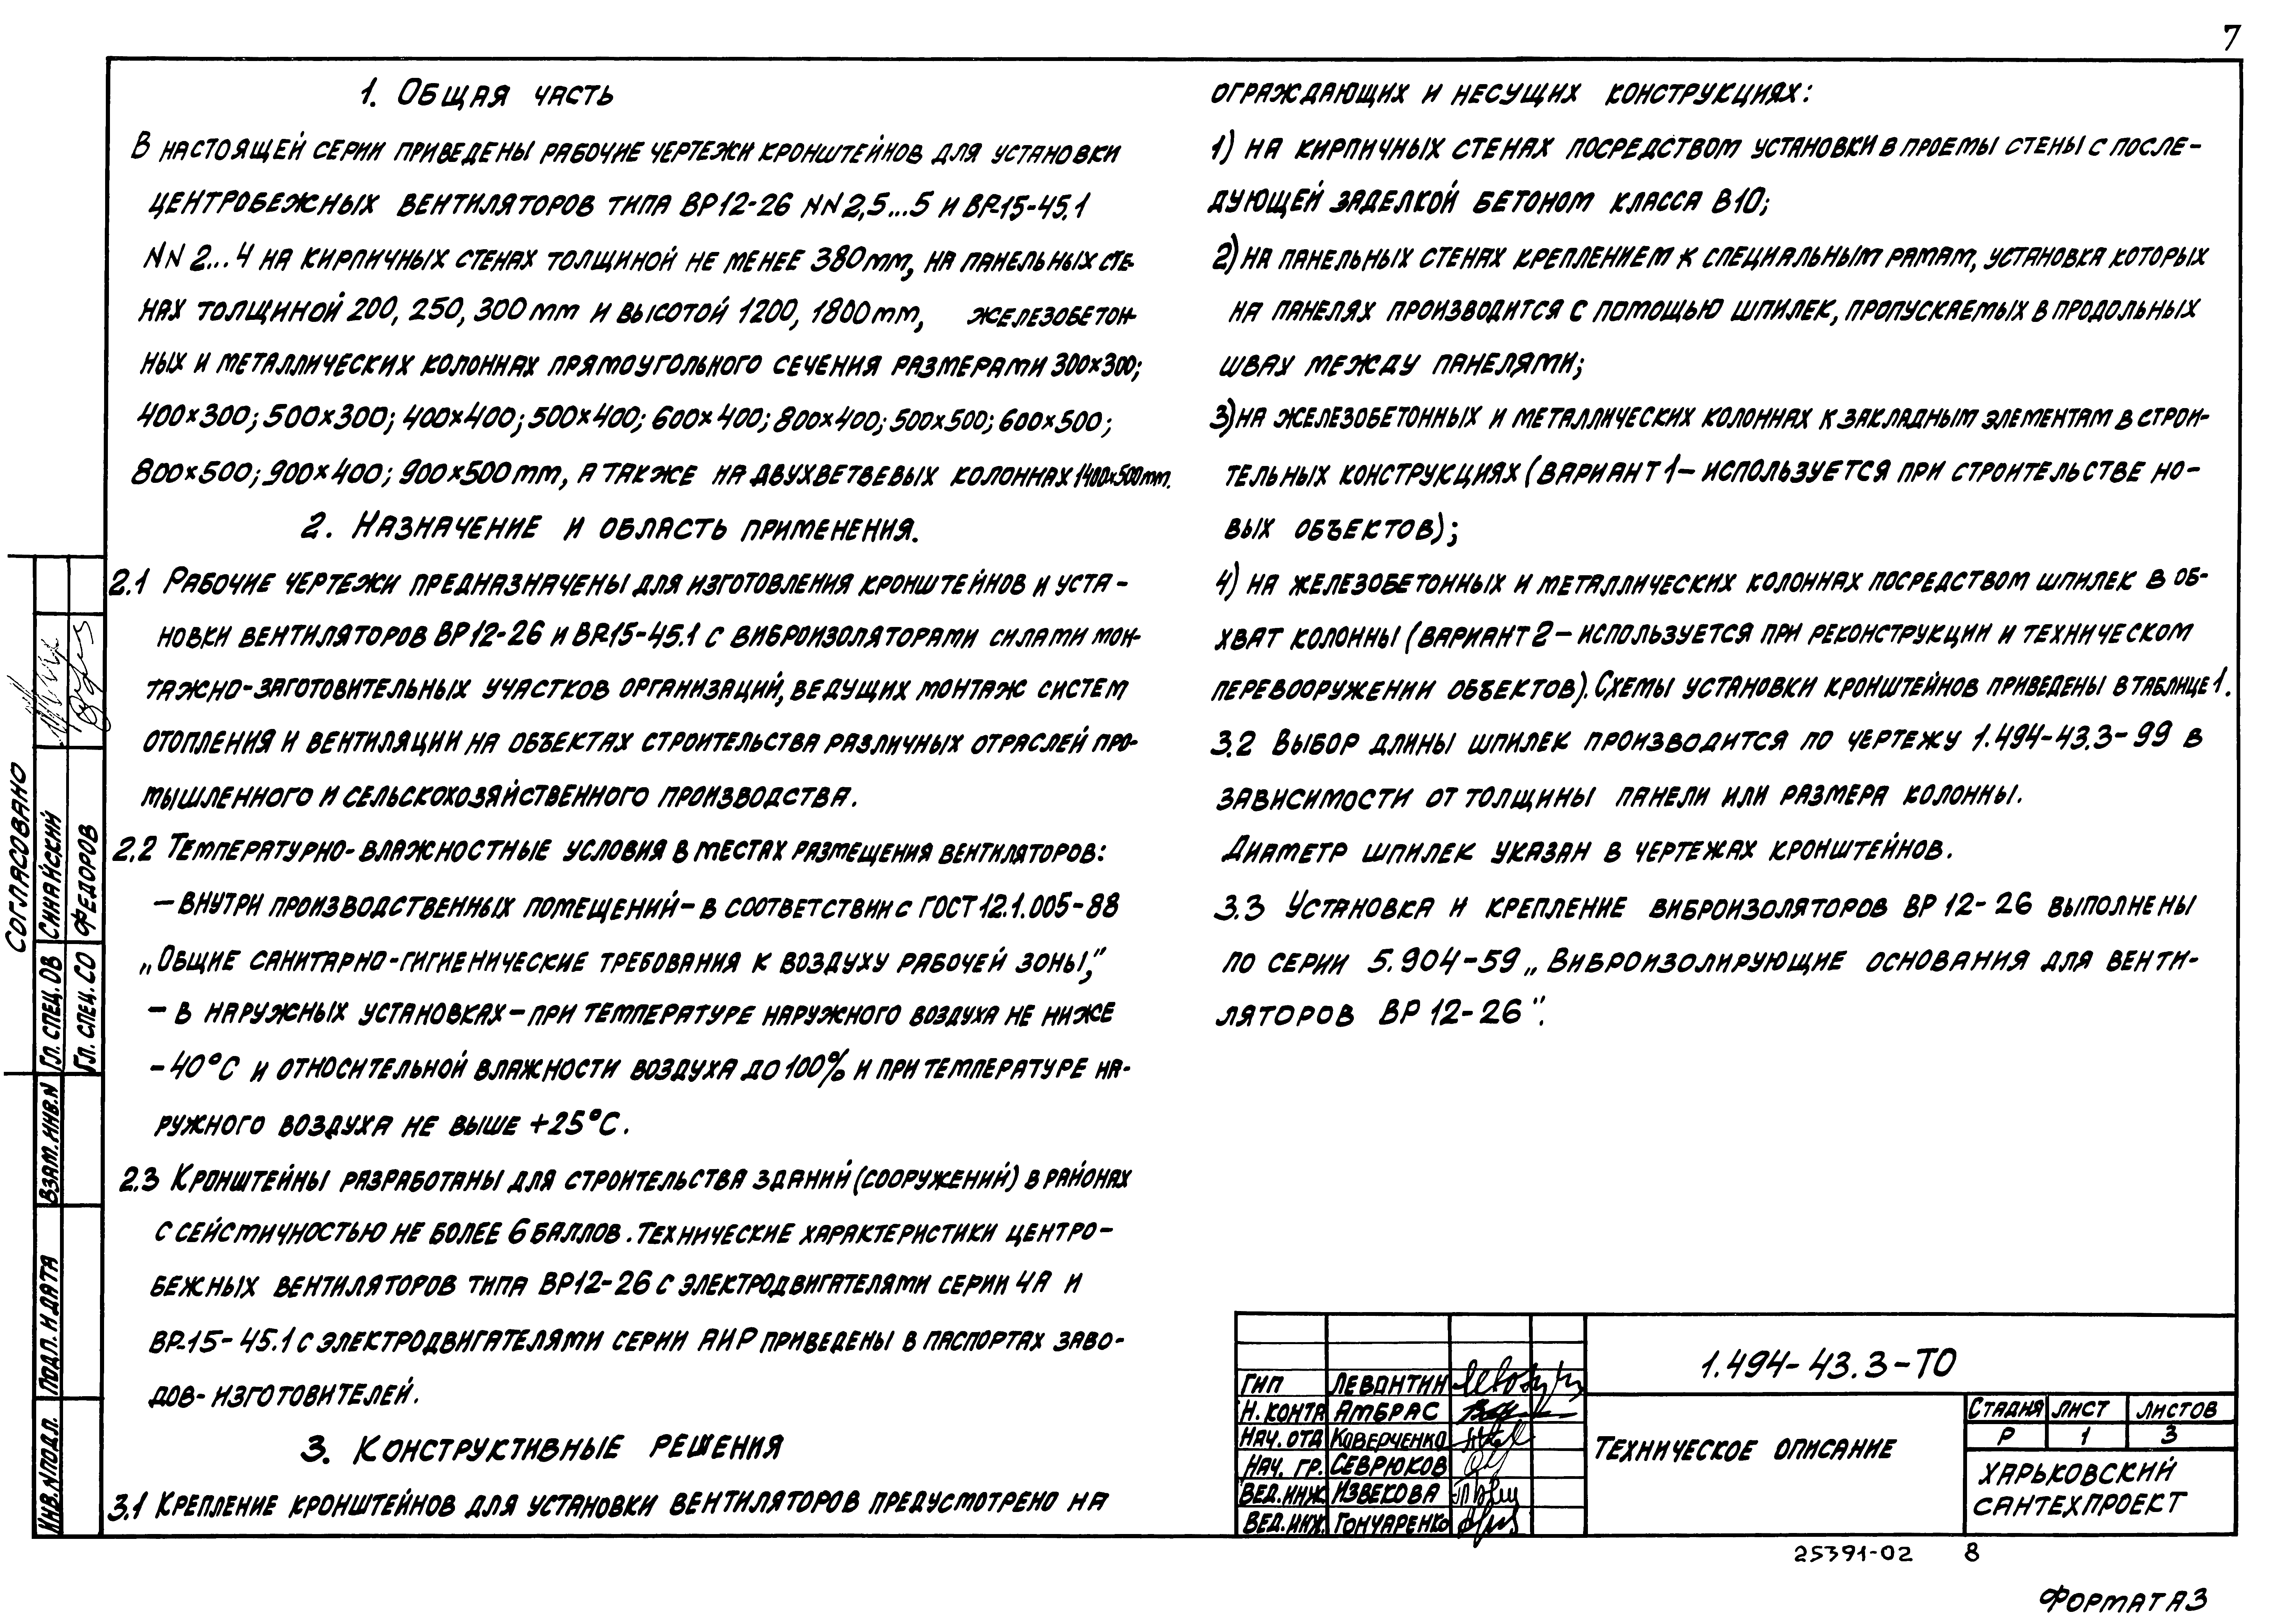 7
1. Общая часть
В настоящей серии приведены рабочие чертежи кронштейнов для установки
центробежных вентиляторов типа ВР12-26 NN 2,5...5 и ВР-15-45.1
NN 2...4 на кирпичных стенах толщиной не менее 380 mm, на панельных сте-
нах толщиной 200, 250, 300 mm и высотой 1200, 1800 mm, железобетон-
ных и металлических колоннах прямоугольного сечения размерами 300×300;
400×300; 500×300; 400×400; 500×400; 600×400; 800×400; 500×500; 600×500;
800×500; 900×400; 900×500 mm, а также на двухветвевых колоннах 1400×500 mm.
2. Назначение и область применения.
2.1 Рабочие чертежи предназначены для изготовления кронштейнов и уста-
новки вентиляторов ВР12-26 и ВР-15-45.1 с виброизоляторами силами мон-
тажно-заготовительных участков организаций, ведущих монтаж систем
отопления и вентиляции на объектах строительства различных отраслей про-
мышленного и сельскохозяйственного производства.
2.2 Температурно-влажностные условия в местах размещения вентиляторов:
— внутри производственных помещений – в соответствии с ГОСТ 12.1.005-88
„Общие санитарно-гигиенические требования к воздуху рабочей зоны",
— в наружных установках – при температуре наружного воздуха не ниже
-40°С и относительной влажности воздуха до 100% и при температуре на-
ружного воздуха не выше +25°С.
2.3 Кронштейны разработаны для строительства зданий (сооружений) в районах
с сейсмичностью не более 6 баллов. Технические характеристики центро-
бежных вентиляторов типа ВР12-26 с электродвигателями серии 4А и
ВР-15-45.1 с электродвигателями серии АИР приведены в паспортах заво-
дов-изготовителей.
3. Конструктивные решения
3.1 Крепление кронштейнов для установки вентиляторов предусмотрено на
ограждающих и несущих конструкциях:
1) на кирпичных стенах посредством установки в проемы стены с после-
дующей заделкой бетоном класса В10;
2) на панельных стенах креплением к специальным рамам, установка которых
на панелях производится с помощью шпилек, пропускаемых в продольных
швах между панелями;
3) на железобетонных и металлических колоннах к закладным элементам в строи-
тельных конструкциях (вариант 1 – используется при строительстве но-
вых объектов);
4) на железобетонных и металлических колоннах посредством шпилек в об-
хват колонны (вариант 2 – используется при реконструкции и техническом
перевооружении объектов). Схемы установки кронштейнов приведены в таблице 1.
3.2 Выбор длины шпилек производится по чертежу 1.494-43.3-99 в
зависимости от толщины панели или размера колонны.
Диаметр шпилек указан в чертежах кронштейнов.
3.3 Установка и крепление виброизоляторов ВР 12-26 выполнены
по серии 5.904-59 „Виброизолирующие основания для венти-
ляторов ВР 12-26".
Согласовано
Гл. спец. ОВ Синайский
Гл. спец. СО Федоров
Взам. инв. N
Подп. и дата
Инв. N подл.
ГИП Левантин
Н. контр Амбрас
Нач. отд Коверченко
Нач. гр. Севрюков
Вед. инж Извекова
Вед. инж. Гончаренко
1.494-43.3-ТО
Техническое описание
Стадия Лист Листов
Р 1 3
Харьковский
Сантехпроект
25391-02 8
Формат А3